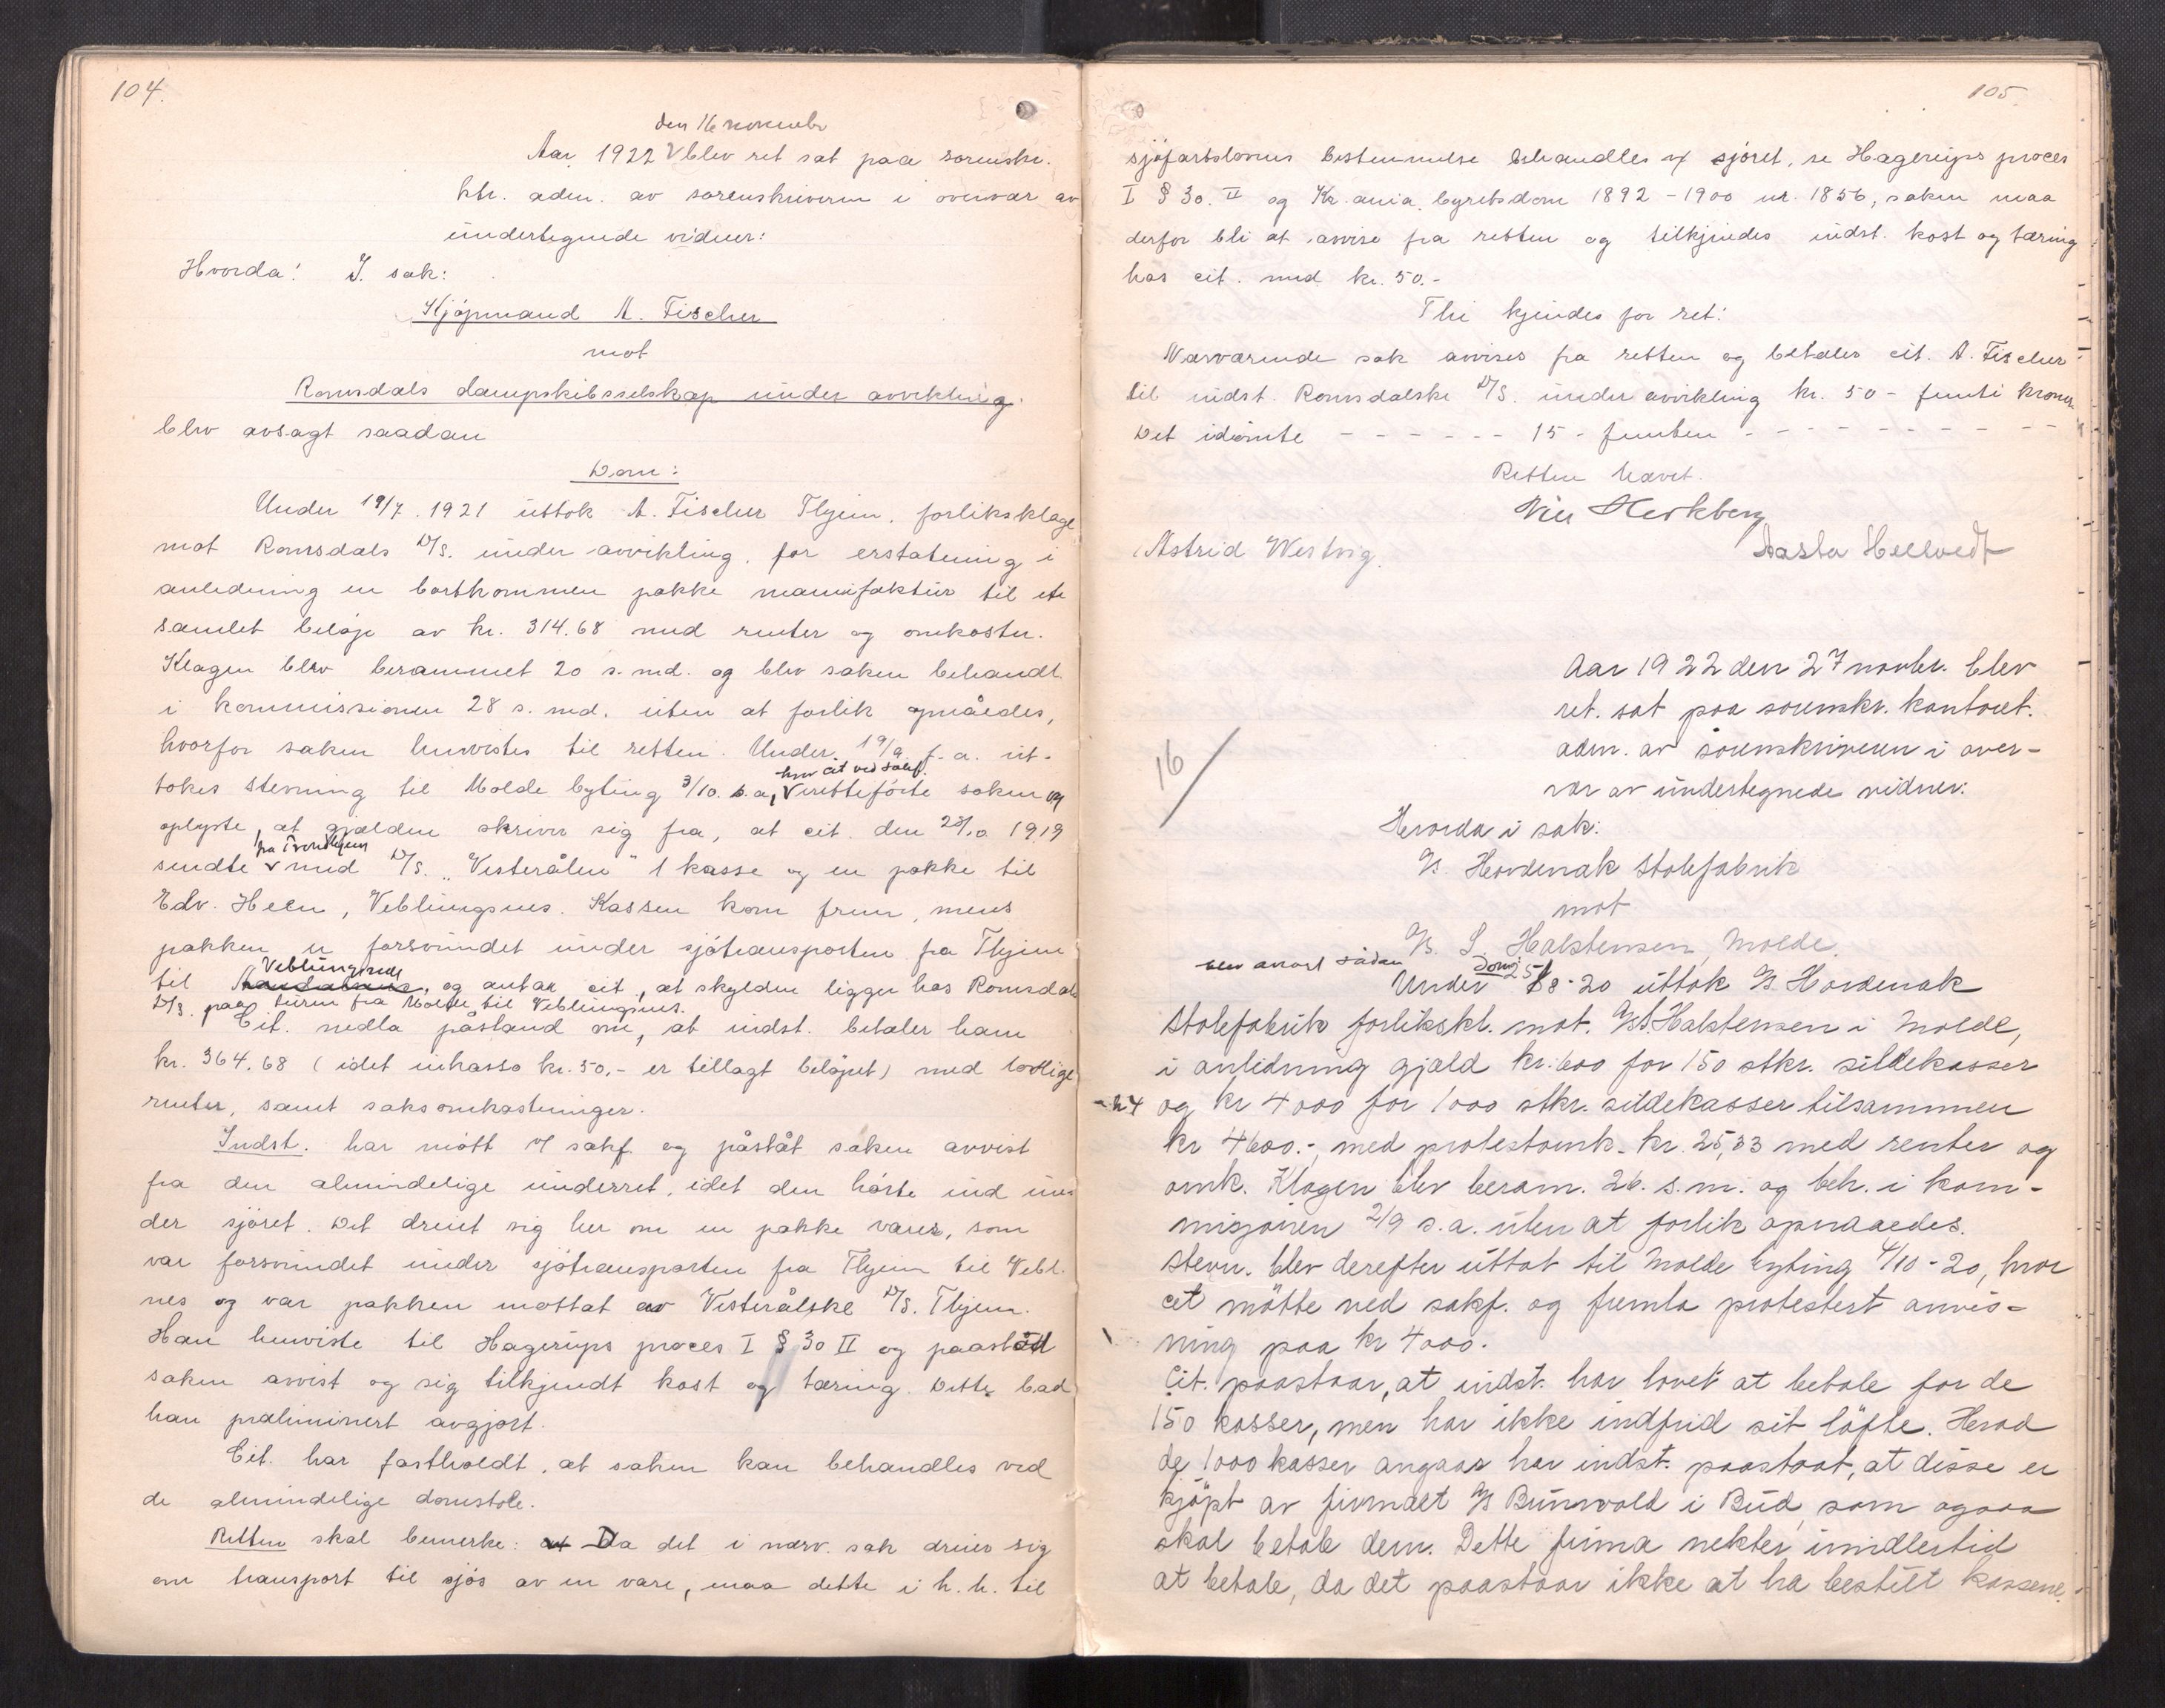 104.
den 16 novembr
Aar 1922 V blev ret sat paa sorenskr.
ktr. adm. av sorenskriveren i overvær av
undertegnede vidner:
Hvorda! I. sak:
Kjøpmand A. Fischer
mot
Romsdals dampskibsselskap under avvikling.
blev avsagt saadan
Dom:
Under 19/7. 1921 uttok A. Fischer Thjem. forliksklage
mot Romsdals D/S. under avvikling. for erstatning i
anledning en bortkommen pakke manufaktur til et
samlet beløp av kr. 314.68 med renter og omkostn.
Klagen blev berammet 20 s. md. og blev saken behandl.
i kommissionen 28 s. md. uten at forlik opnåedes,
hvorfor saken henvistes til retten. Under 19/9 f. a. ut-
hvor cit ved sakf.
tokes stevning til Molde byting 3/10. s.a, V retteførte saken og
oplyste, at gjælden skriver sig fra, at cit. den 23/10 1919
fra Trondhjem
sendte v med D/S. "Vesterålen" 1 kasse og en pakke til
Edv. Heen, Veblungsnes. Kassen kom frem, mens
pakken er forsvundet under sjøtransporten fra Thjem
Veblungsnes
til Aandalsnes, og antar cit, at skylden ligger hos Romsdals
D/S. paa turen fra Molde til Veblungsnes.
Cit. nedla påstand om, at indst. betaler ham
kr. 364.68 (idet inkasso kr. 50.- er tillagt beløpet) med lovlige
renter, samt saksomkostninger.
Indst. har møtt v/ sakf. og påståt saken avvist
fra den almindelige underret, idet den hørte ind un-
der sjøret. Det dreiet sig her om en pakke varer, som
var forsvundet under sjøtransporten fra Thjem til Vebl.
nes og var pakken mottat av Vesterålske D/S. Thjem.
Han henviste til Hagerups proces I § 30 II og paastod
saken avvist og sig tilkjendt kost og tæring. Dette bad
han præliminert avgjort.
Cit. har fastholdt, at saken kan behandles ved
de almindelige domstole.
Retten skal bemerke: at Da det i nærv. sak dreier sig
om transport til sjøs av en vare, maa dette i h. h. til
105.
sjøfartslovens bestemmelse behandles v/ sjøret, se Hagerups proces
I § 30. II og Kr.ania byretsdom 1892 - 1900 nr. 1856, saken maa
derfor bli at avvise fra retten og tilkjendes indst. kost og tæring
hos cit. med kr. 50.-
Thi kjendes for ret:
Nærværende sak avvises fra retten og betaler cit. A. Fischer
til indst. Romsdalske D/S. under avvikling kr. 50 - femti kroner
Det idømte - - - - - - 15 - femten - - - - - - - - - -
Retten hævet.
Astrid Westvig.
Aasta Hellvedt
Aar 1922 den 27 novbr. blev
ret. sat paa sorenskr. kontoret.
adm. av sorenskriveren i over-
vær av undertegnede vidner:
16
Hvorda i sak:
A/S. Hovdenak Stolefabrik
mot
A/S. S. Halstensen, Molde.
blev avsagt sådan Dom:
Under 25/8-20 uttok A/S Hovdenak
Stolefabrik forlikskl. mot. A/S S. Halstensen i Molde,
i anledning gjæld kr. 600 for 150 stkr. sildekasser
og kr 4000 for 1000 stkr. sildekasser tilsammen
kr 4600.-, med protestomk. kr. 25,33 med renter og
omk. Klagen blev beram. 26. s.m. og beh. i kom-
misjonen 2/9 s.a. uten at forlik opnaaedes.
Stevn. blev derefter uttat til Molde byting 4/10-20, hvor
cit møtte ved sakf. og fremla protestert anvis-
ning paa kr 4000.
Cit. paastaar, at indst. har lovet at betale for de
150 kasser, men har ikke indfrid sit løfte. Hvad
de 1000 kasser angaar har indst. paastaat, at disse er
kjøpt av firmaet A/S Bunvold i Bud, som ogsaa
skal betale dem. Dette firma nekter imidlertid
at betale, da det paastaar ikke at ha bestilt kassene.